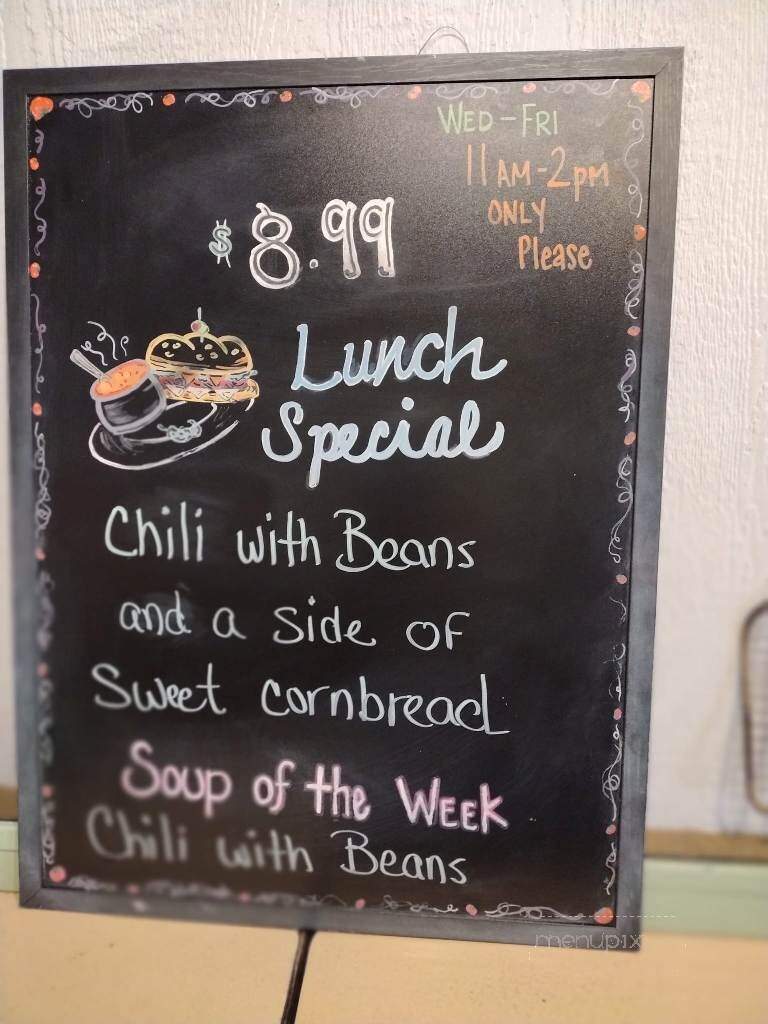 WED - FRI
11 AM - 2 PM
ONLY
Please
$8.99
Lunch
Special
Chili with Beans
and a side of
Sweet cornbread
Soup of the WEEK
Chili with Beans
menupix